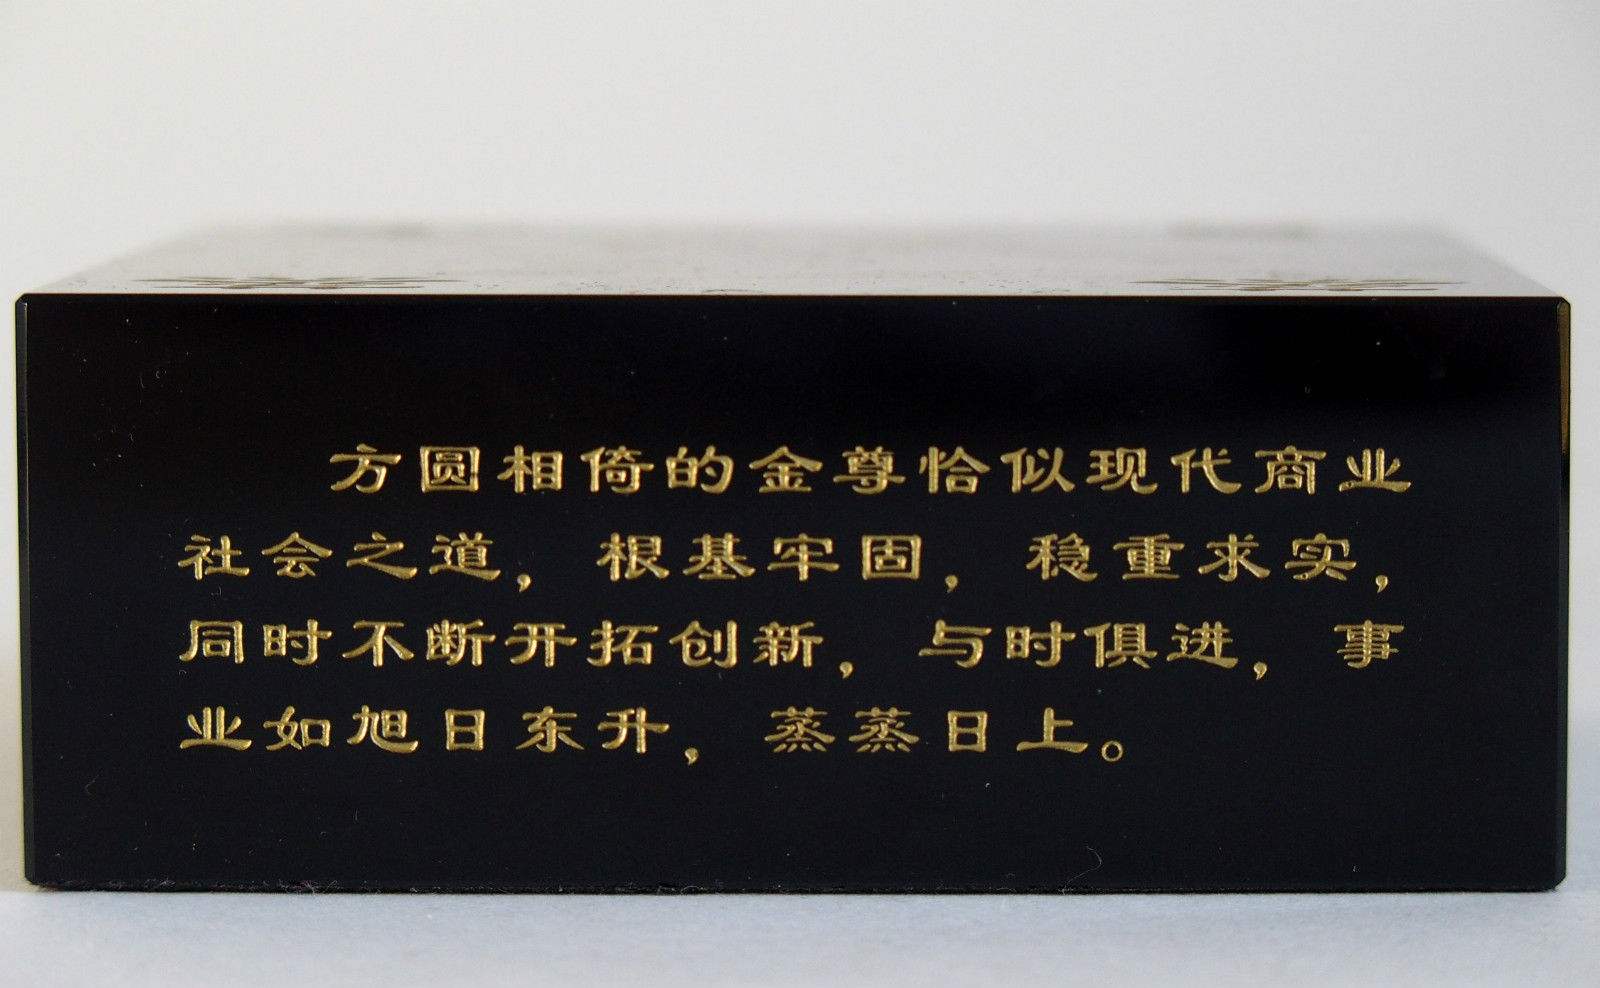 方圆相倚的金尊恰似现代商业
社会之道，根基牢固，稳重求实，
同时不断开拓创新，与时俱进，事
业如旭日东升，蒸蒸日上。